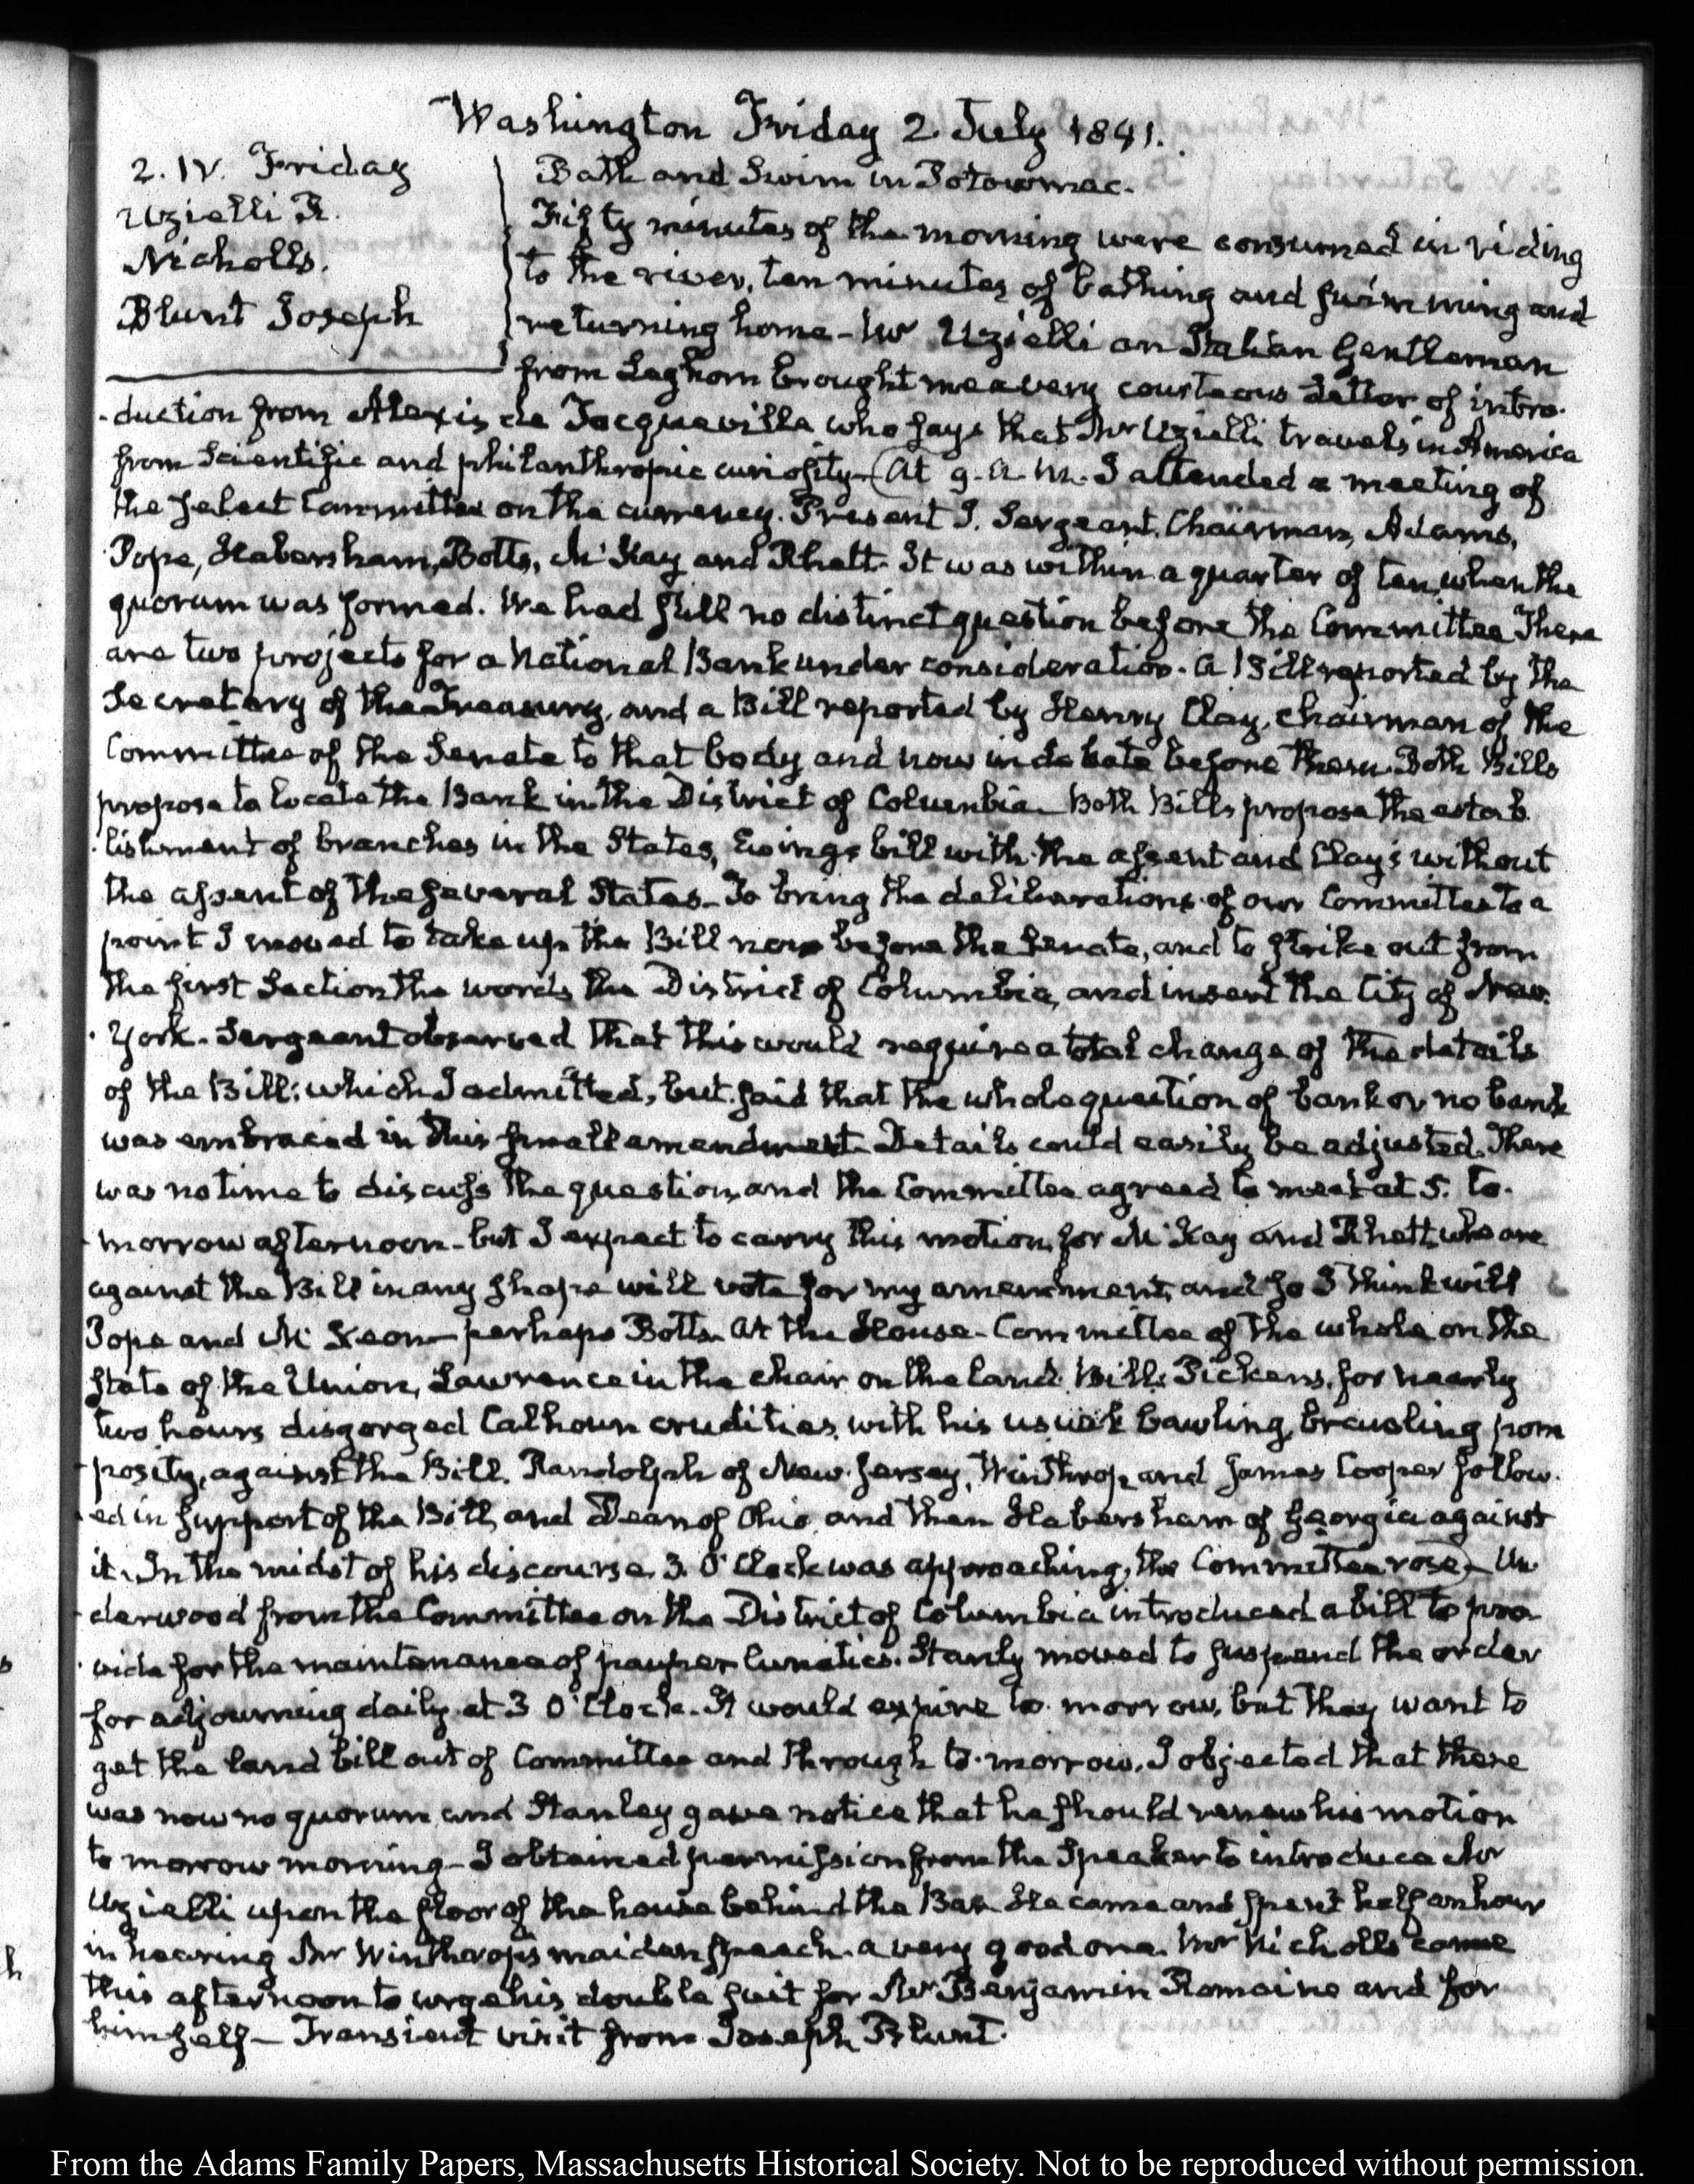 Washington Friday 2. July 1841.
2. IV. Friday
Uzielli R.
Nicholls.
Blunt Joseph
Bath and Swim in Potowmac.
Fifty minutes of the morning were consumed in riding
to the river, ten minutes of bathing and swimming and
returning home - Mr Uzielli an Italian Gentleman
from Leghorn brought me a very courteous Letter of intro-
-duction from Alexis de Tocqueville who says that Mr Uzielli travels in America
from Scientific and philanthropic curiosity - (At 9. a.m. I attended a meeting of
the select Committee on the currency. Present J. Sergeant, Chairman, Adams,
Pope, Habersham, Botts, McKay and Rhett. It was within a quarter of ten, when the
quorum was formed. We had still no distinct question before the Committee There
are two projects for a National Bank under consideration. A Bill reported by the
Secretary of the Treasury, and a Bill reported by Henry Clay, Chairman of the
Committee of the Senate to that body and now in debate before them. Both Bills
propose to locate the Bank in the District of Columbia - Both Bills propose the estab-
-lishment of branches in the States, Ewing's bill with the assent and Clay's without
the assent of the several States - To bring the deliberations of our Committee to a
point I moved to take up the Bill now before the Senate, and to strike out from
the first Section the words the District of Columbia, and insert the City of New-
-York. Sergeant observed that this would require a total change of the details
of the Bill; which I admitted, but said that the whole question of bank or no bank
was embraced in this small amendment. Details could easily be adjusted. There
was no time to discuss the question, and the Committee agreed to meet at 5. to-
-morrow afternoon - but I expect to carry this motion, for McKay and Rhett, who are
against the Bill in any shape will vote for my amendment, and so I think will
Pope and McKeon - perhaps Botts. At the House - Committee of the whole on the
State of the Union, Lawrence in the chair on the land Bill. Pickens, for nearly
two hours disgorged Calhoun crudities, with his usual bawling, brawling pom
-posity, against the Bill. Randolph of New-Jersey, Winthrop and James Cooper follow-
-ed in support of the Bill, and Dean of Ohio, and then Habersham of Georgia against
it. In the midst of his discourse, 3. O'Clock was approaching, the Committee rose) - Un-
-derwood from the Committee on the District of Columbia introduced a bill to pro-
-vide for the maintenance of pauper lunatics. Stanly moved to suspend the order
for adjourning daily at 3 O'Clock. It would expire to-morrow, but they want to
get the land bill out of Committee and through to-morrow. I objected that there
was now no quorum and Stanley gave notice that he should renew his motion
to morrow morning - I obtained permission from the Speaker to introduce Mr
Uzielli upon the floor of the house behind the Bar He came and spent half an hour
in hearing Mr Winthrop's maiden speech. a very good one. Mr Nicholls came
this afternoon to urge his double suit for Mr Benjamin Romaine and for
himself - Transient visit from Joseph Blunt.
From the Adams Family Papers, Massachusetts Historical Society. Not to be reproduced without permission.